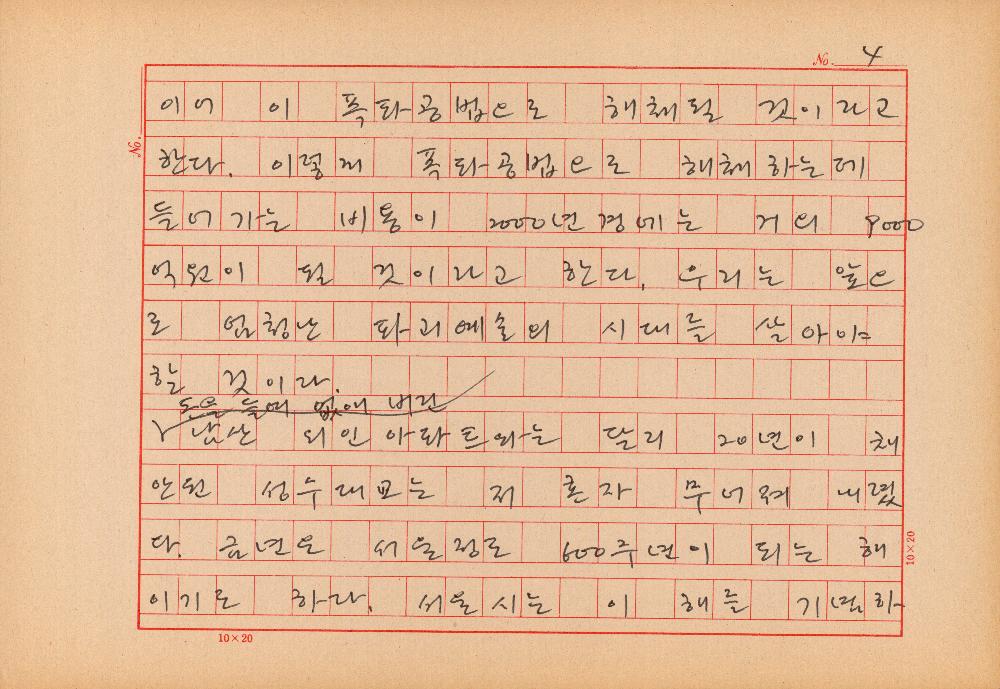 No. 4
No.
이어 이 폭파공법으로 해체될 것이라고
한다. 이렇게 폭파공법으로 해체하는데
들어가는 비용이 2000년경에는 거의 8000
억원이 될 것이라고 한다. 우리는 앞으
로 엄청난 파괴예술의 시대를 살아야
할 것이라.
돈을 들여 없애 버린
남산 외인아파트와는 달리 20년이 채
안된 성수대교는 저 혼자 무너져 내렸
다. 금년은 서울정도 600주년이 되는 해
이기도 하다. 서울시는 이 해를 기념하
10×20
10×20